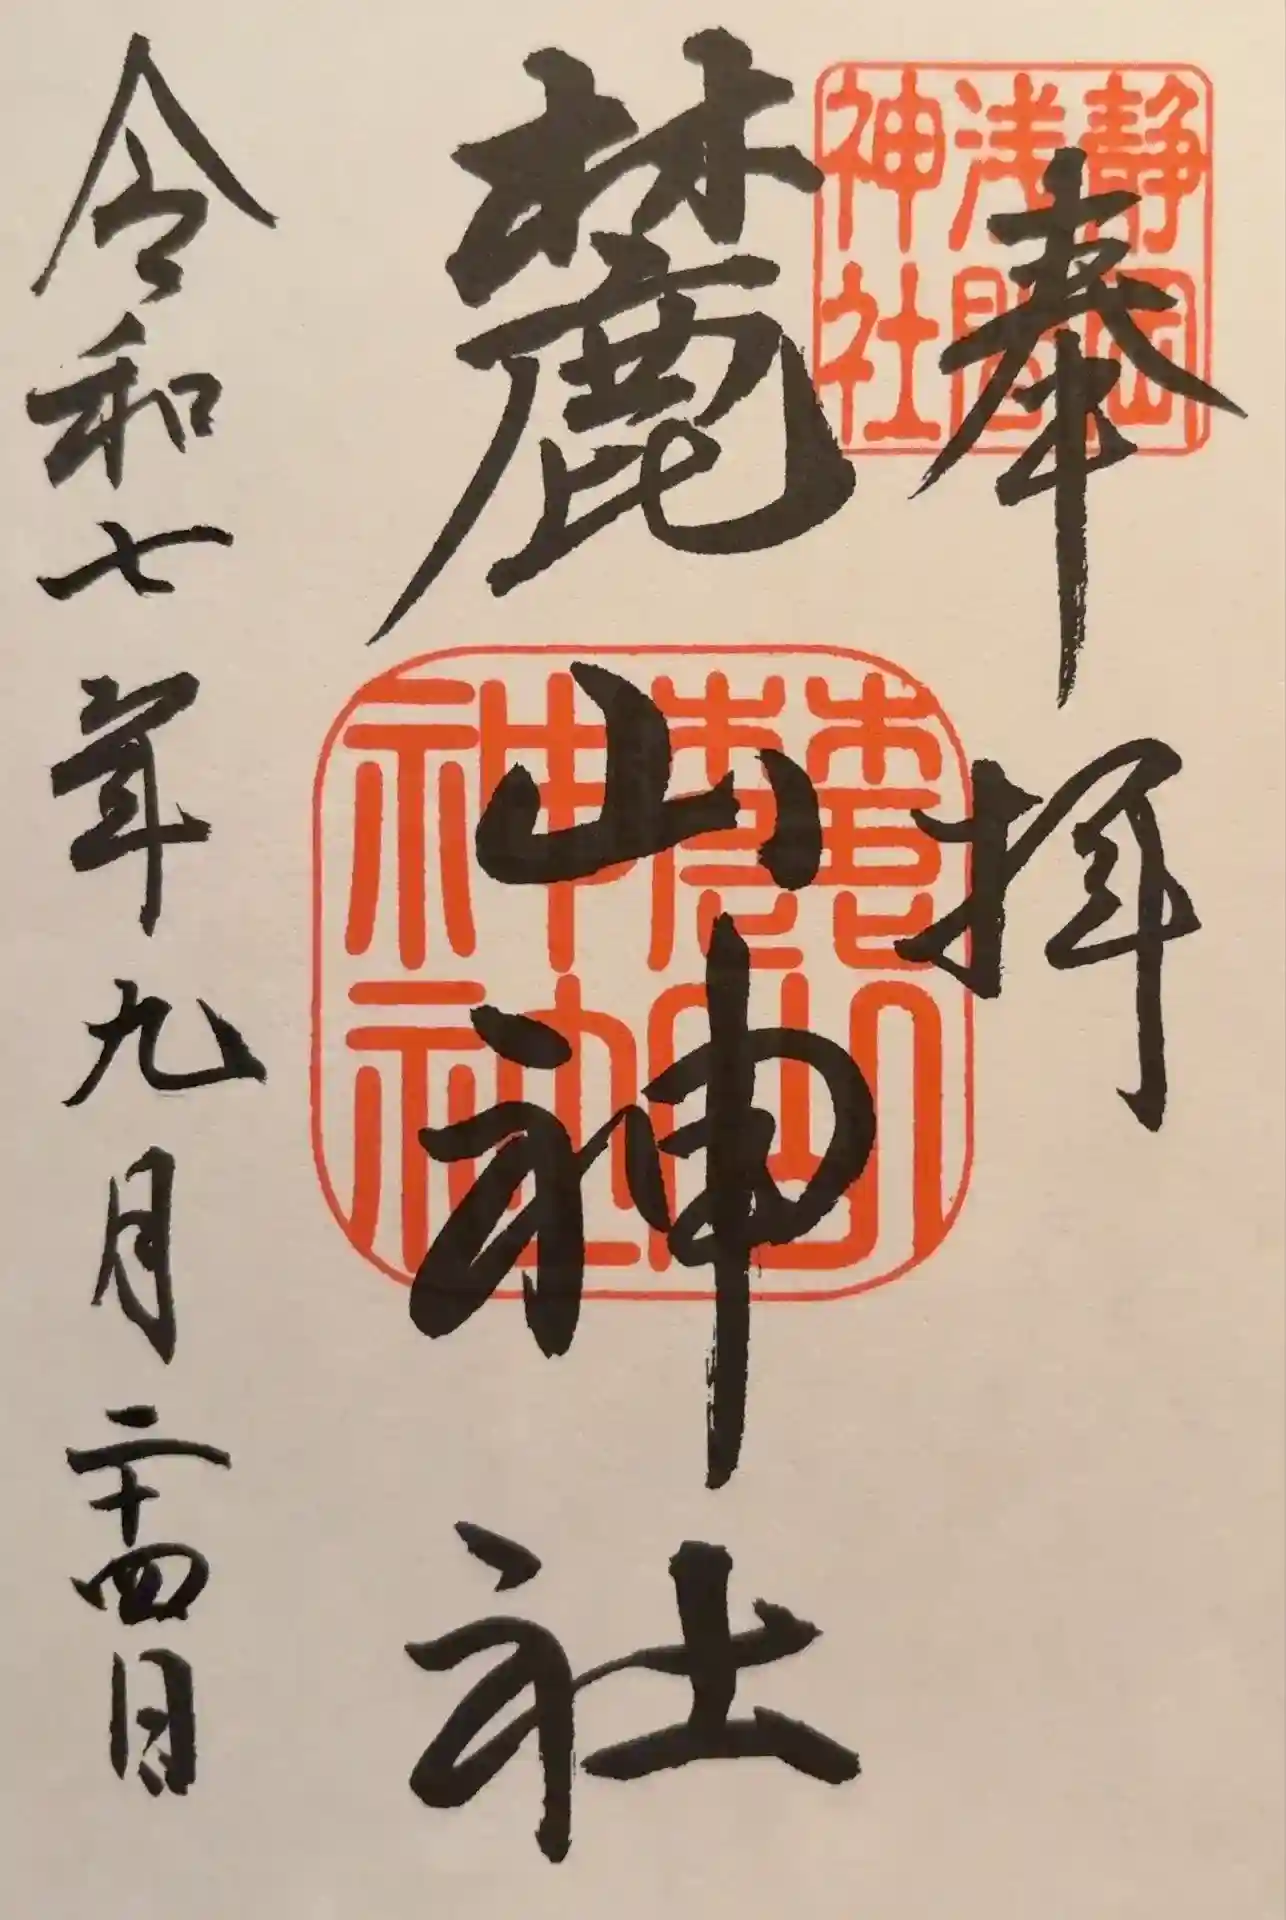 奉拝
静岡
浅間
神社
麓山神社
麓山
神社
令和七年九月二十四日